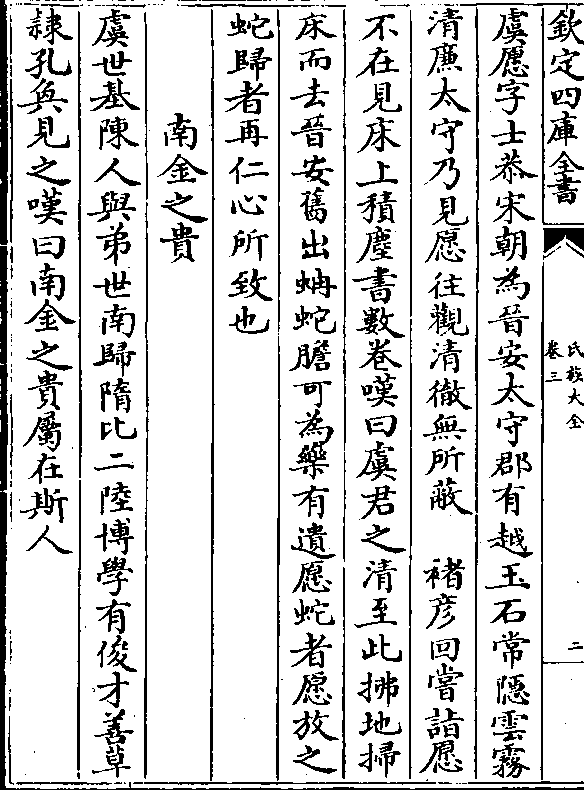 欽定四庫全書
氏族大全
卷三
二
虞愿字士恭宋朝為晉安太守郡有越王石常隱雲霧
清廉太守乃見愿往觀清徹無所蔽　褚彦回嘗詣愿
不在見床上積塵書數卷嘆曰虞君之清至此拂地掃
床而去晉安舊出蚺蛇膽可為藥有遺愿蛇者愿放之
蛇歸者再仁心所致也
南金之貴
虞世基陳人與弟世南歸隋比二陸博學有俊才善草
隷孔奐見之嘆曰南金之貴屬在斯人